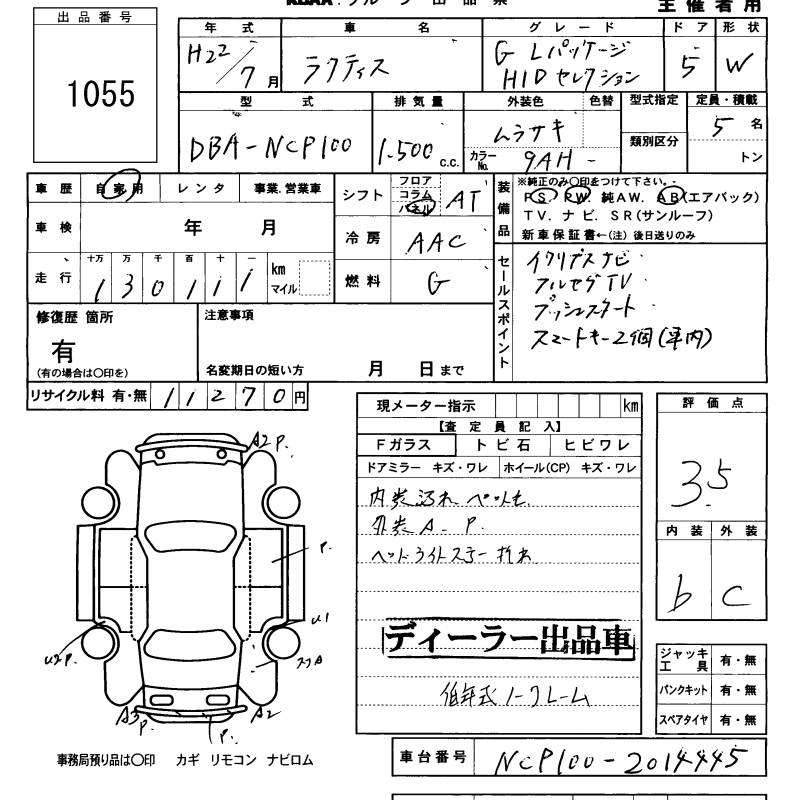 主催者用
出品番号
1055
年式 車名 グレード ドア 形状
H22/7月 ラクティス G Lパッケージ HIDセレクション 5 W
型式 排気量 外装色 色替 型式指定 定員・積載
DBA-NCP100 1.500 c.c. ムラサキ 類別区分 5名
カラーNo. 9AH - トン
車歴 自家用 レンタ 事業.営業車
シフト フロア コラム パネル AT
装備品 ※純正のみ○印をつけて下さい。
PS. PW. 純AW. AB(エアバック)
TV. ナビ. SR(サンルーフ)
新車保証書←(注) 後日送りのみ
車検 年 月
冷房 AAC
走行 十万 万 千 百 十 一 km マイル
1 3 0 1 1 1
燃料 G
セールスポイント
イクリプスナビ
フルセグTV
プッシュスタート
スマートキー2個(車内)
修復歴 箇所
有
(有の場合は○印を)
注意事項
名変期日の短い方 月 日まで
リサイクル料 有・無 1 1 2 7 0 円
現メーター指示 km
【査定員記入】
Fガラス トビ石 ヒビワレ
ドアミラー キズ・ワレ ホイール(CP) キズ・ワレ
内装汚れ ペット毛
外装A. P.
ヘッドライトステー折れ
ディーラー出品車
低年式ノークレーム
評価点
3.5
内装 外装
b C
ジャッキ工具 有・無
パンクキット 有・無
スペアタイヤ 有・無
A2 P.
P.
U1
U2 P.
スリA
A3 P.
P.
A2
事務局預り品は○印 カギ リモコン ナビロム
車台番号 NCP100-2014445